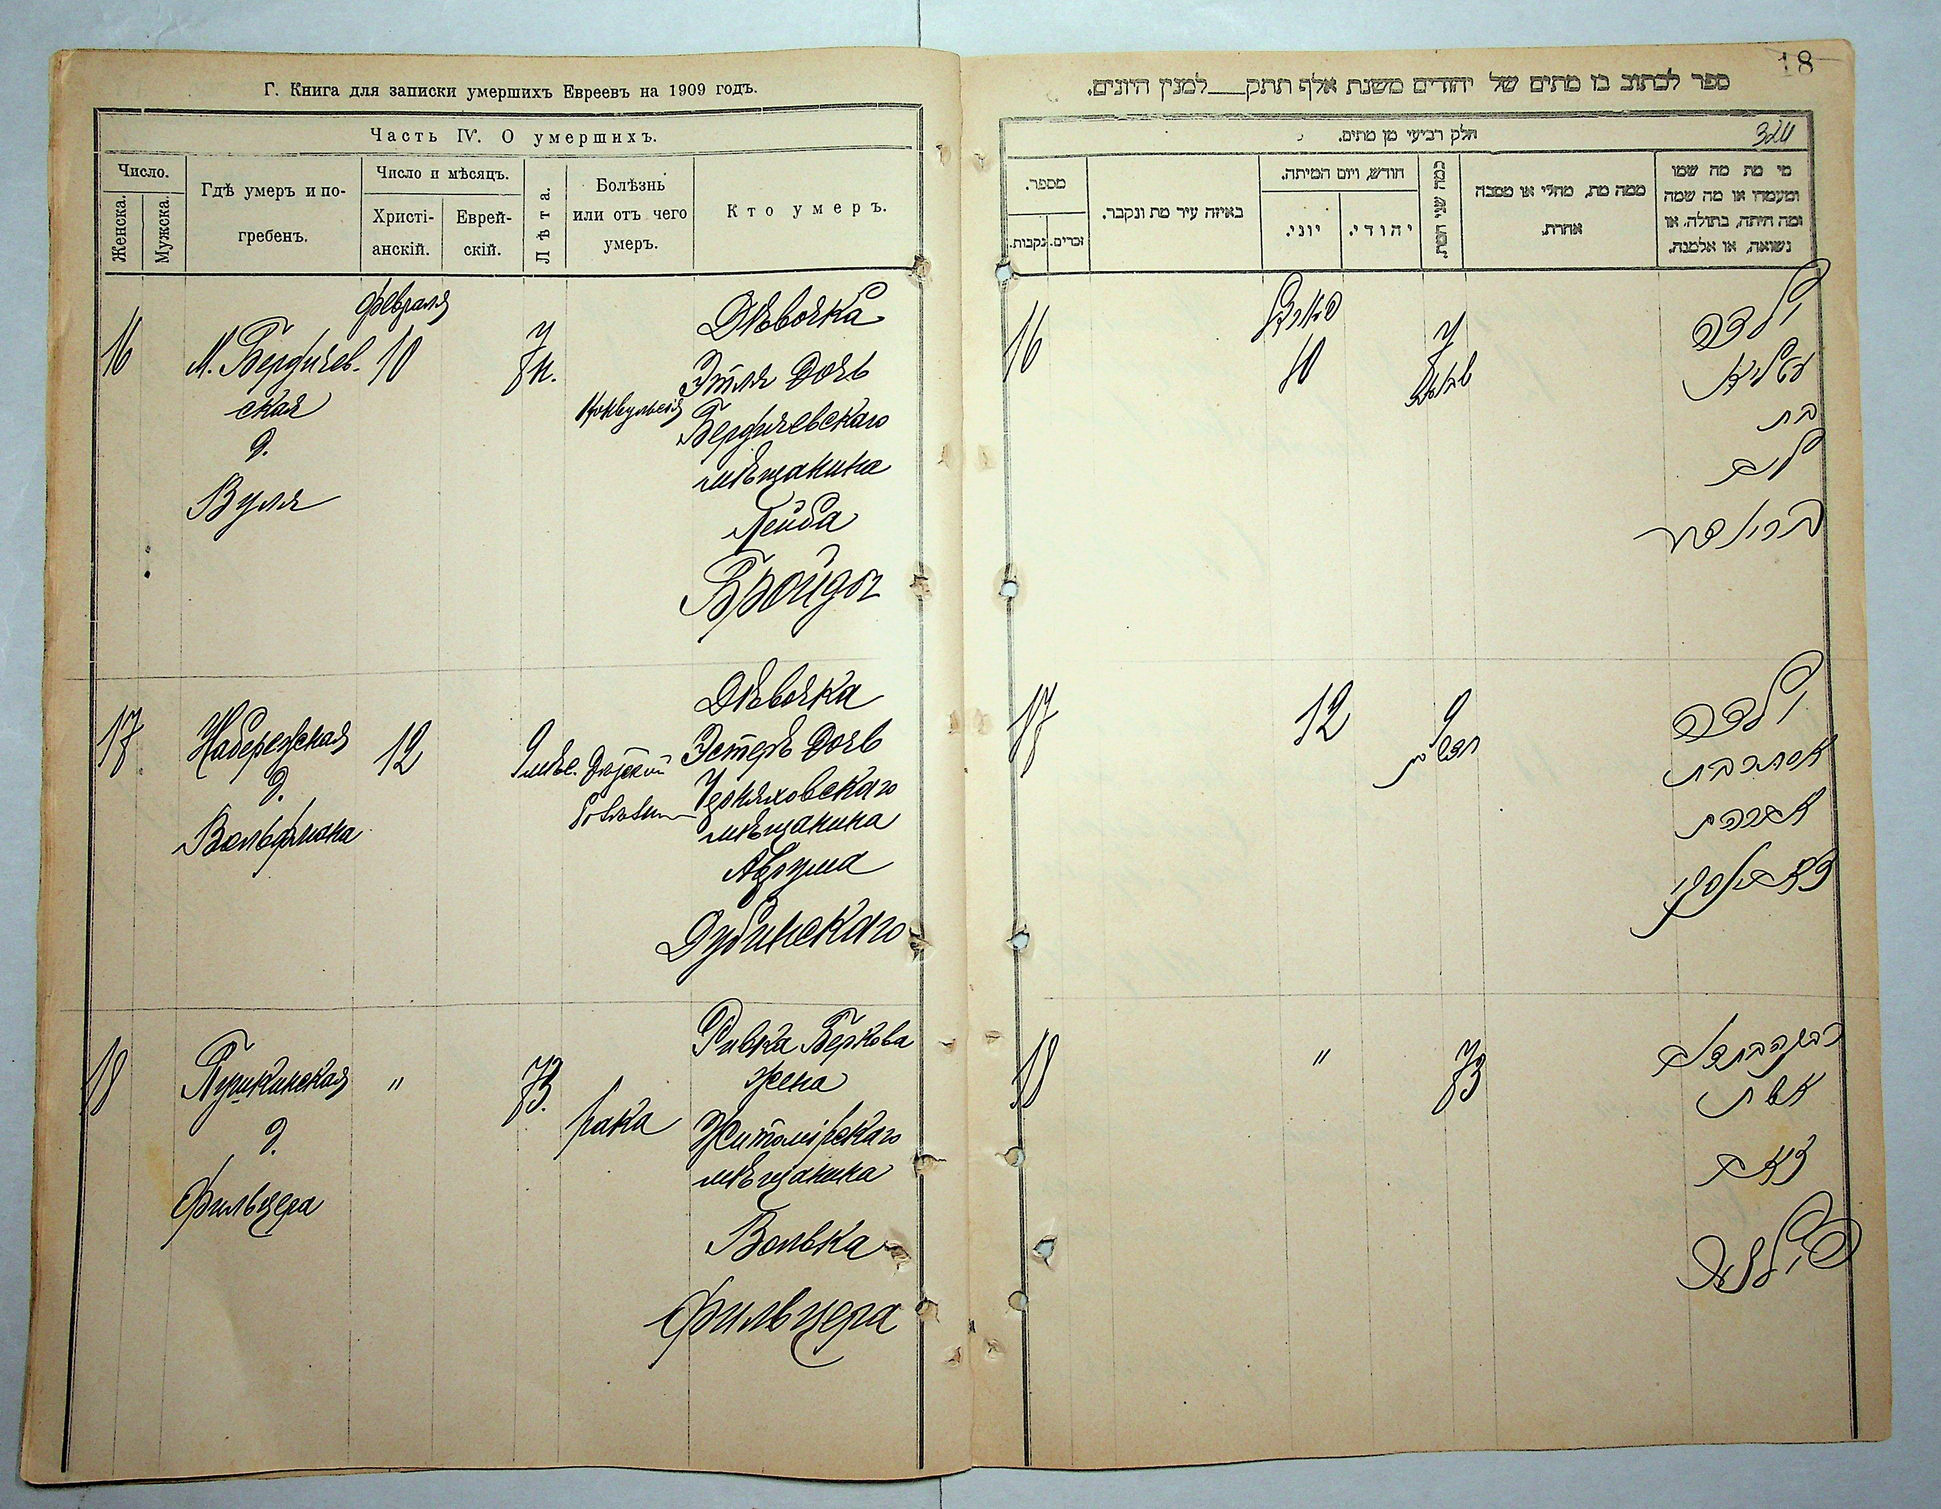 Г. Книга для записки умершихъ Евреевъ на 1909 годъ.
Часть IV. О умершихъ.
Число.
Женска.
Мужска.
Гдѣ умеръ и по-
гребенъ.
Число и мѣсяцъ.
Христі-
анскій.
Еврей-
скій.
Лѣта.
Болѣзнь
или отъ чего
умеръ.
Кто умеръ.
16
М. Бердичев-
ская
д.
Вуля
февраля
10
7
дн.
Конвульсія
Дѣвочка
Этля дочь
Бердичевскаго
мѣщанина
Лейба
Бройды
17
Набережская
д.
Вольфмана
12
9 мѣс.
Дѣвочка
Эстеръ дочь
Черняховскаго
мѣщанина
Аврума
Дубинскаго
18
Пушкинская
д.
Фильцера
"
73.
рака
Ривка Беркова
жена
Житомірскаго
мѣщанина
Волька
Фильцера
18
ספר לכתוב בו מתים של יהודים משנת אלף תתק___למנין היונים.
חלק רביעי מן מתים.
מספר.
נקבות.
זכרים.
באיזה עיר מת ונקבר.
חודש, ויום המיתה.
יוני.
יהודי.
כמה שני המת.
ממה מת, מחלי או מסבה
אחרת.
מי מת מה שמו
ומעמדו או מה שמה
ומה היתה, בתולה, או
נשואה, או אלמנה.
16
10
7
ילדה
עטליא
בת
ליב
17
12
9
ילדה
אסתר בת
אברהם
18
"
73
אשת
זאב
פילצער